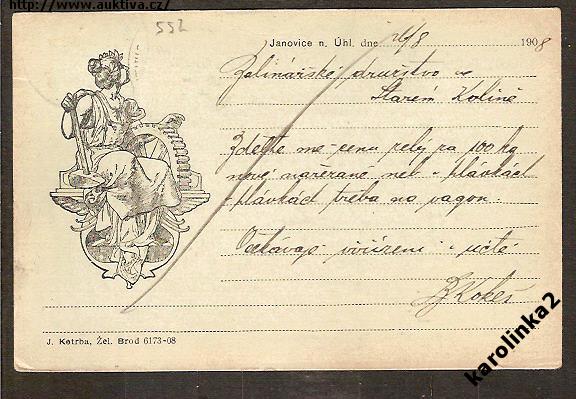 http://www.auktiva.cz/
552
Janovice n. Úhl. dne 24/8 1908
Zelinářské družstvo ve
Starém Kolíně
Zdelte mě cenu zelý za 100 kg
nové nařezané neb v hlávkách
hlávkách třeba na vagon.
Očekávaje vyřízení v úctě
Kokeš
J. Ketrba, Žel. Brod 6173-08
karolinka2